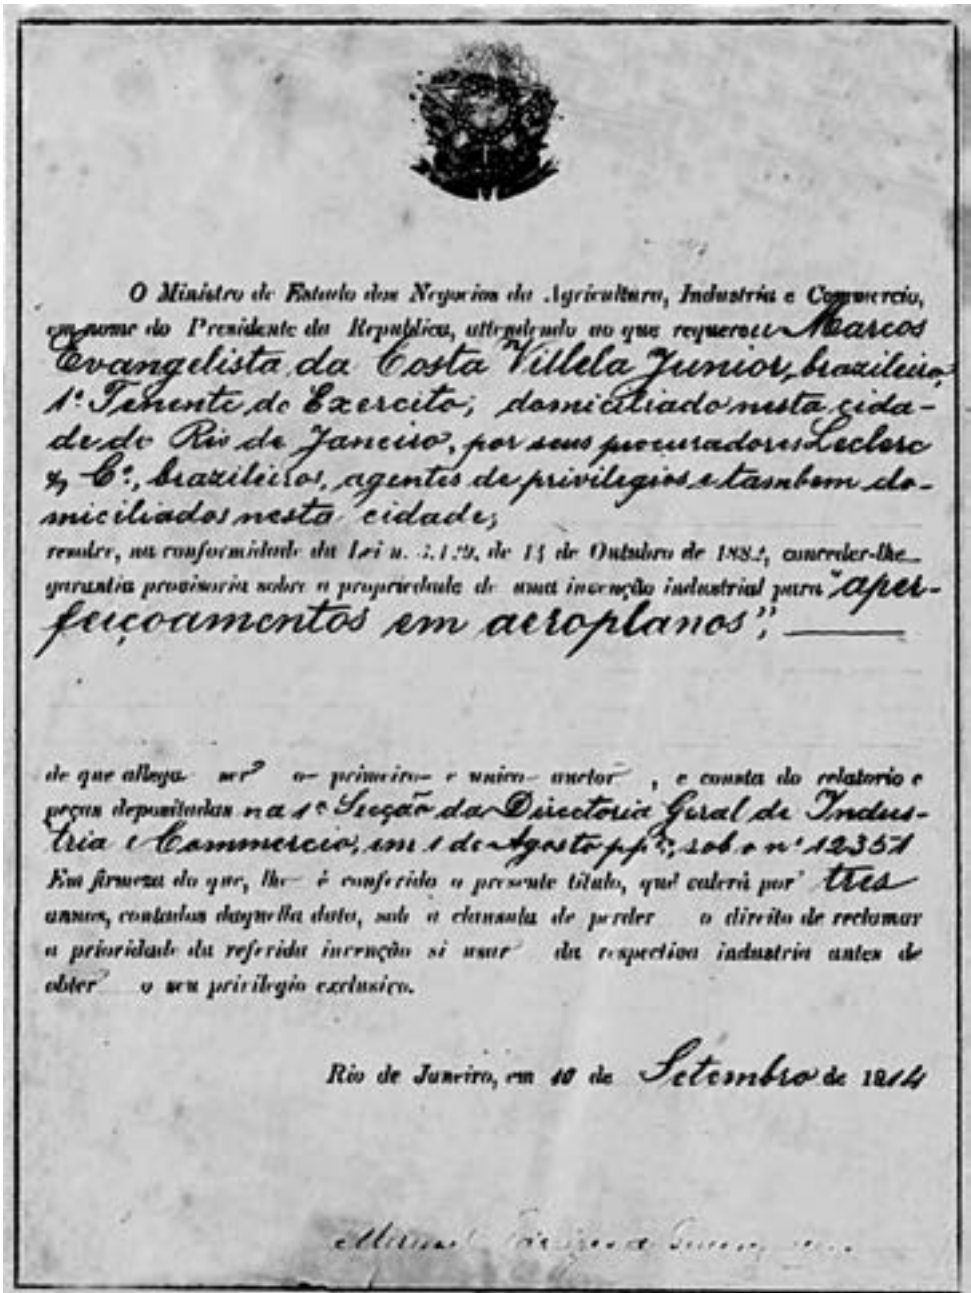 O Ministro de Estado dos Negocios da Agricultura, Industria e Commercio,
em nome do Presidente da Republica, attendendo ao que requereu Marcos
Evangelista da Costa Villela Junior, brazileiro,
1º Tenente do Exercito, domiciliado nesta cida-
de do Rio de Janeiro, por seus procuradores Leclerc
& Cº, brazileiros, agentes de privilegios e tambem do-
miciliados nesta cidade,
resolve, na conformidade da Lei n. 3.129, de 14 de Outubro de 1882, conceder-lhe
garantia provisoria sobre a propriedade de uma invenção industrial para "aper-
feiçoamentos em aeroplanos",
de que allega ser o primeiro e unico auctor, e consta do relatorio e
peças depositadas na 1ª Secção da Directoria Geral de Indus-
tria e Commercio, em 1 de Agosto ppº, sob o nº 12351
Em firmeza do que, lhe é conferido o presente titulo, que valerá por tres
annos, contados daquella data, sob a clausula de perder o direito de reclamar
a prioridade da referida invenção si usar da respectiva industria antes de
obter o seu privilegio exclusivo.
Rio de Janeiro, em 10 de Setembro de 1914